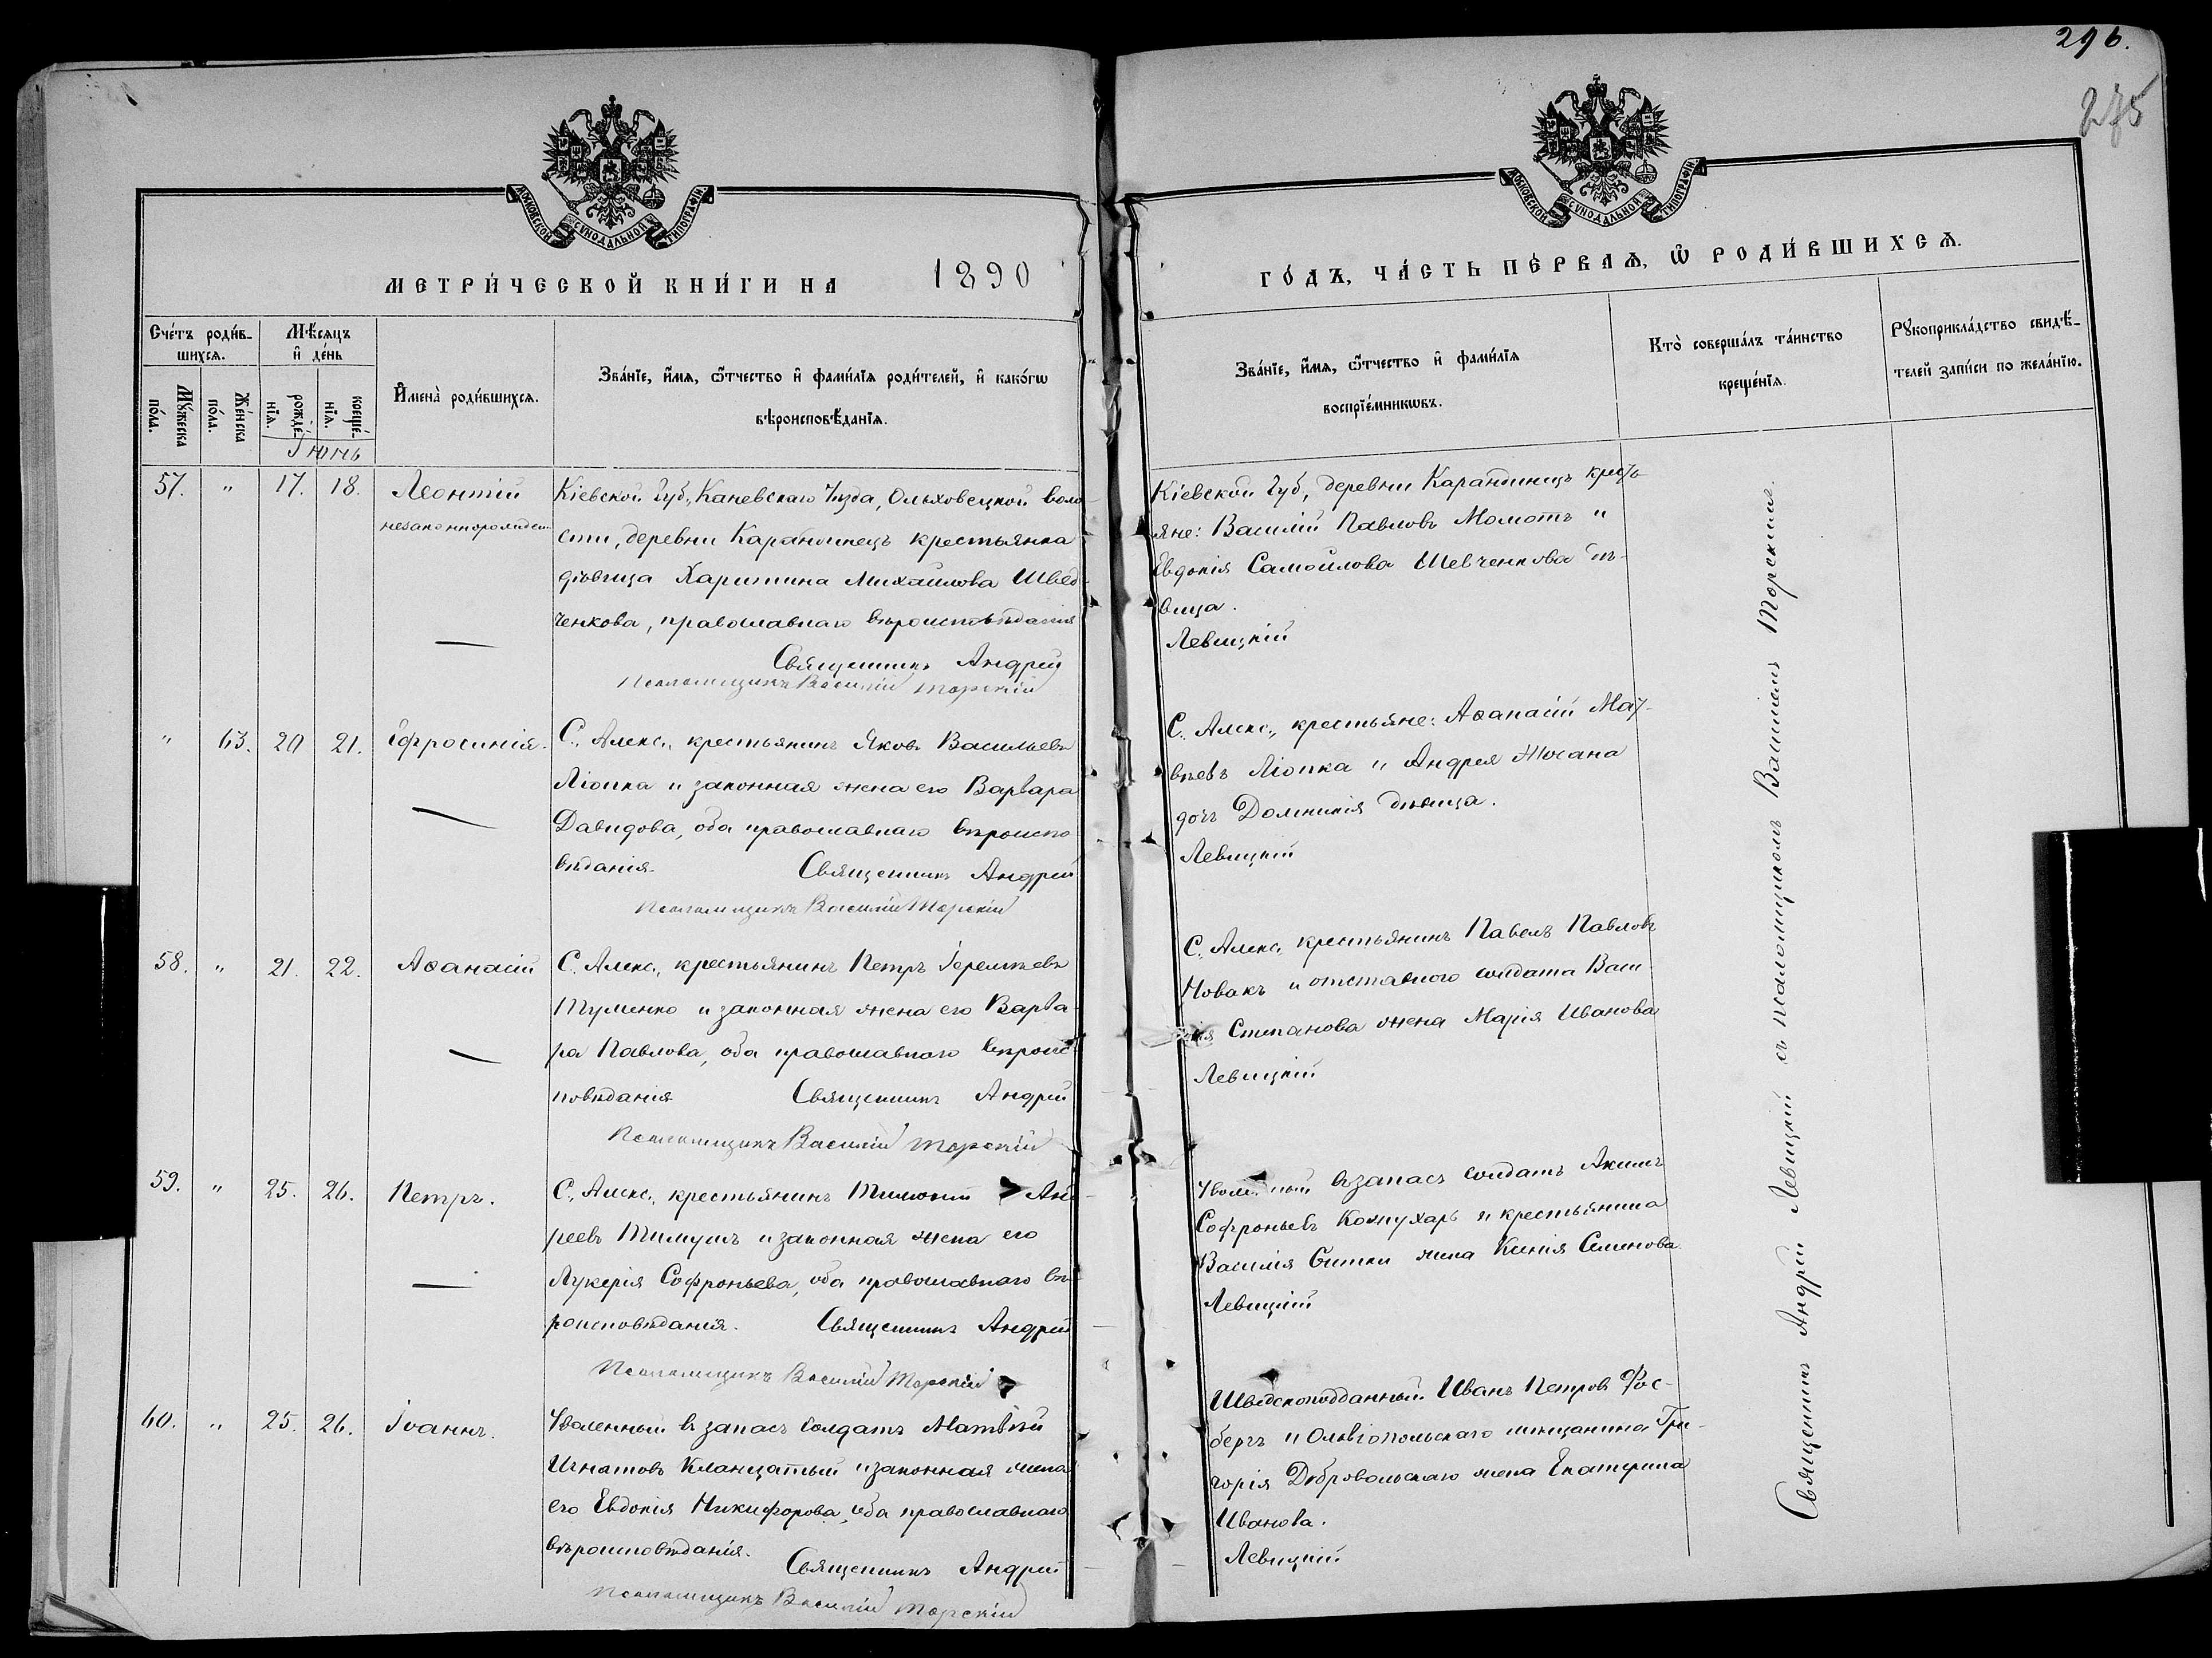 296.
275
МОСКОВСКОЙ СУНОДАЛЬНОЙ ТИПОГРАФІИ
МОСКОВСКОЙ СУНОДАЛЬНОЙ ТИПОГРАФІИ
МЕТРИ́ЧЕСКОЙ КНИ́ГИ НА 1890
ГО́ДЪ, ЧА́СТЬ ПЕ́РВАѦ, Ѽ РОДИ́ВШИХСѦ.
Сче́тъ роди́в-
шихсѧ.
Мѣ́сѧцъ
и҆ де́нь
Мꙋ́жеска
по́ла.
Же́нска
по́ла.
рожде́-
нїѧ.
креще́-
нїѧ.
И҆мена̀ роди́вшихсѧ.
Зва́нїе, и҆́мѧ, ѻ҆́тчество и҆ фами́лїѧ роди́телей, и҆ како́гѡ
вѣроисповѣ́данїѧ.
Зва́нїе, и҆́мѧ, ѻ҆́тчество и҆ фами́лїѧ
воспрїе́мникѡвъ.
Кто̀ соверша́лъ та́инство
креще́нїѧ.
Рꙋкоприкла́дство свидѣ́-
телей за́писи по жела́нїю.
Іюнь
57. " 17. 18. Леонтій Кіевской Губ., Каневскаго Уѣзда, Ольховецкой воло-
незаконнорожден.
сти, деревни Карандинецъ крестьянка
дѣвица Харитина Михайлова Швед-
ченкова, православнаго вѣроисповѣданія
Священникъ Андрей
Псаломщикъ Василій Торскій
Кіевской Губ., деревни Карандинецъ кресть-
яне: Василій Павловъ Момотъ и
Евдокія Самойлова Шевченкова дѣ-
вица.
Левицкій
" 63. 20 21. Ефросинія. С. Алекс., крестьянинъ Яковъ Васильевъ
Ліопка и законная жена его Варвара
Давидова, оба православнаго вѣроиспо-
вѣданія. Священникъ Андрей
Псаломщикъ Василій Торскій
С. Алекс., крестьяне: Аѳанасій Мат-
вѣевъ Ліопка и Андрея Жосана
дочь Домникія дѣвица.
Левицкій
58. " 21. 22. Аѳанасій С. Алекс., крестьянинъ Петръ Іеремѣевъ
Туменко и законная жена его Варва-
ра Павлова, оба православнаго вѣроис-
повѣданія Священникъ Андрей
Псаломщикъ Василій Торскій
С. Алекс. крестьянинъ Павелъ Павловъ
Новакъ и отставного солдата Васи-
лія Степанова жена Марія Иванова
Левицкій
59. " 25. 26. Петръ. С. Алекс., крестьянинъ Тимоѳій Анд-
реевъ Тимушъ и законная жена его
Лукерія Софроньева, оба православнаго вѣ-
роисповѣданія. Священникъ Андрей
Псаломщикъ Василій Торскій
Уволенный в запасъ солдатъ Акимъ
Софроньевъ Кожухарь и крестьянина
Василія жена Ксенія Семенова
Левицкій
60. " 25. 26. Іоаннъ. Уволенный в запасъ солдатъ Матвѣй
Игнатовъ Кланцатый и законная жена
его Евдокія Никифорова, оба православнаго
вѣроисповѣданія.
Священникъ Андрей
Псаломщикъ Василій Торскій
Шведскоподданный Иванъ Петровъ Фос-
бергъ и Ольвіопольскаго мѣщанина Гри-
горія Добровольскаго жена Екатерина
Иванова.
Левицкій
Священникъ Андрей Левицкій съ псаломщикомъ Василіемъ Торскимъ.